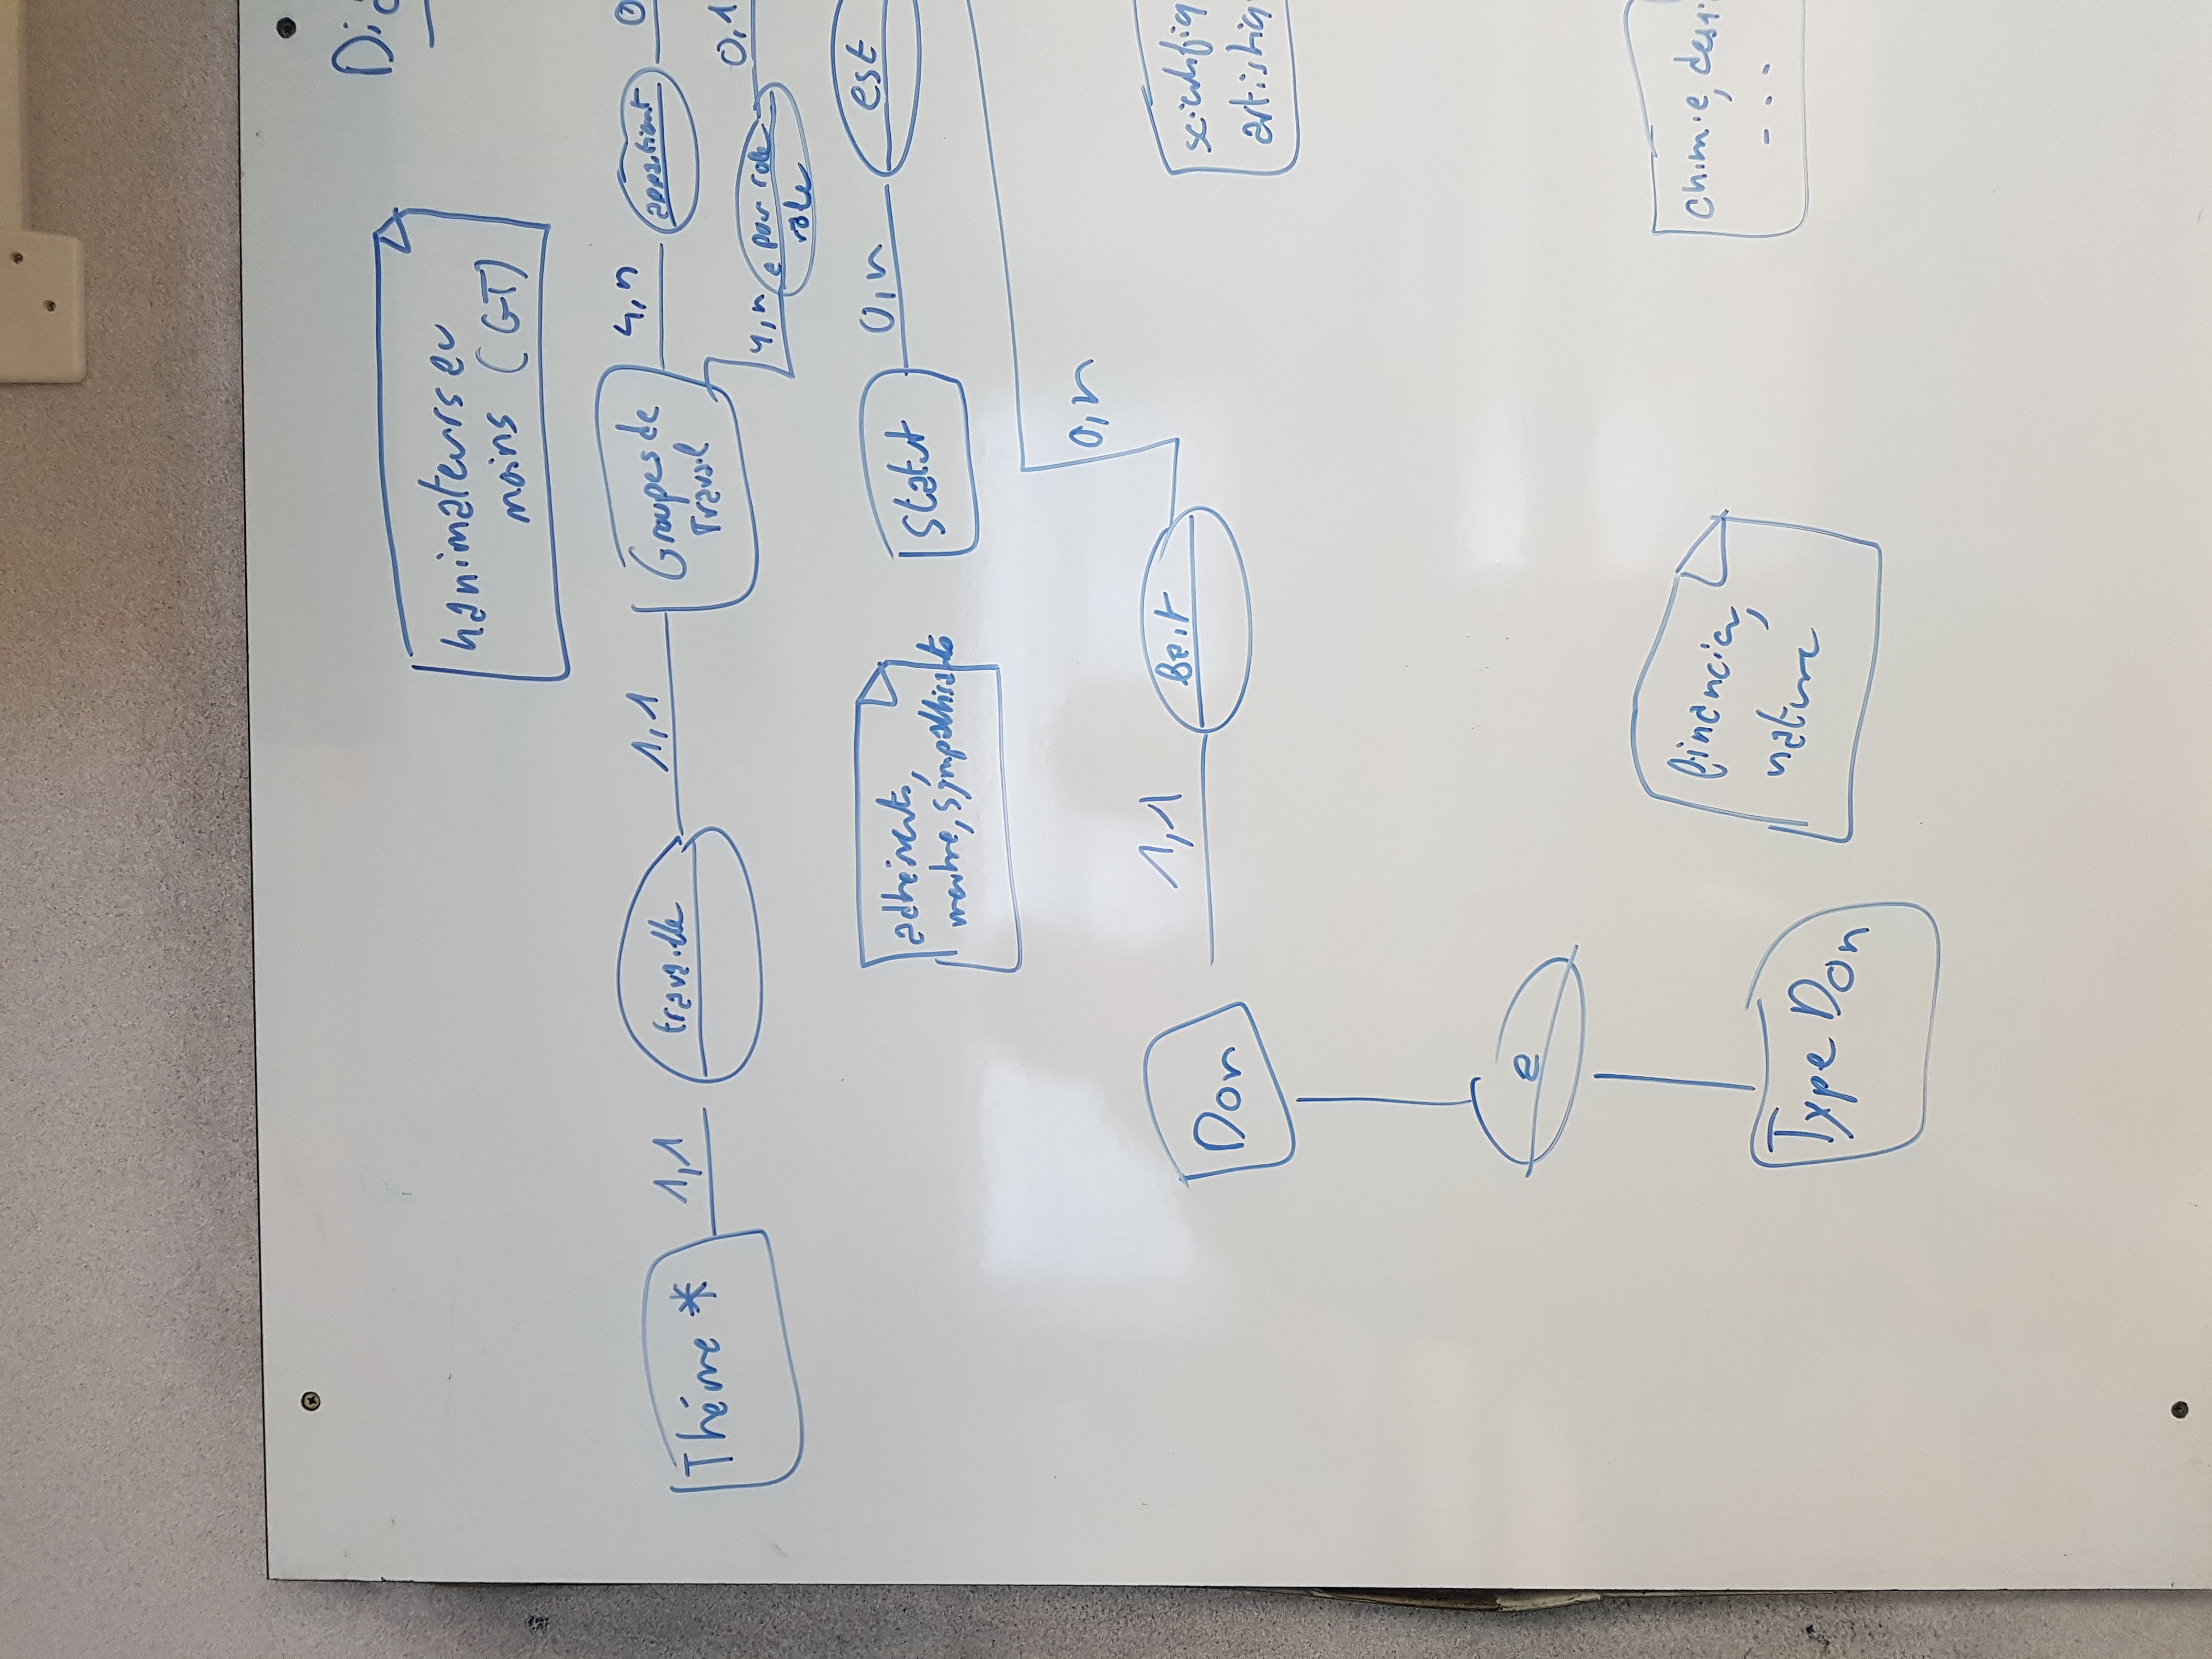 Dia
4 animateurs au
moins (GT)
Théme *
1,1
travaille
1,1
Groupes de
Travail
4,n
appartient
0
4,n
a pour role
role
0,1
adhérents,
membre, sympathisants
Statut
0,n
est
0,n
Don
1,1
fait
scientifiq
artistiq
a
Type Don
financier,
nature
chimie, dessi
...